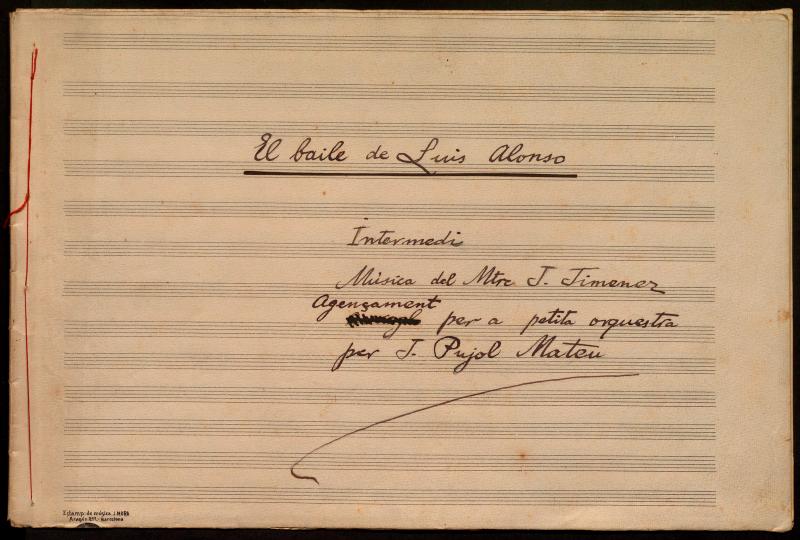 El baile de Luis Alonso
Intermedi
Música del Mtre J. Jimenez
Agençament
per a petita orquestra
per J. Pujol Mateu
Estamp. de música J. MORA
Aragón 277.- Barcelona